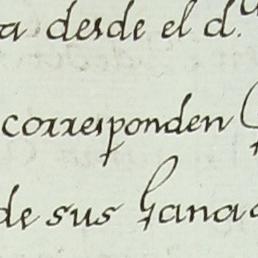 a desde el d.
corresponden
de sus gana